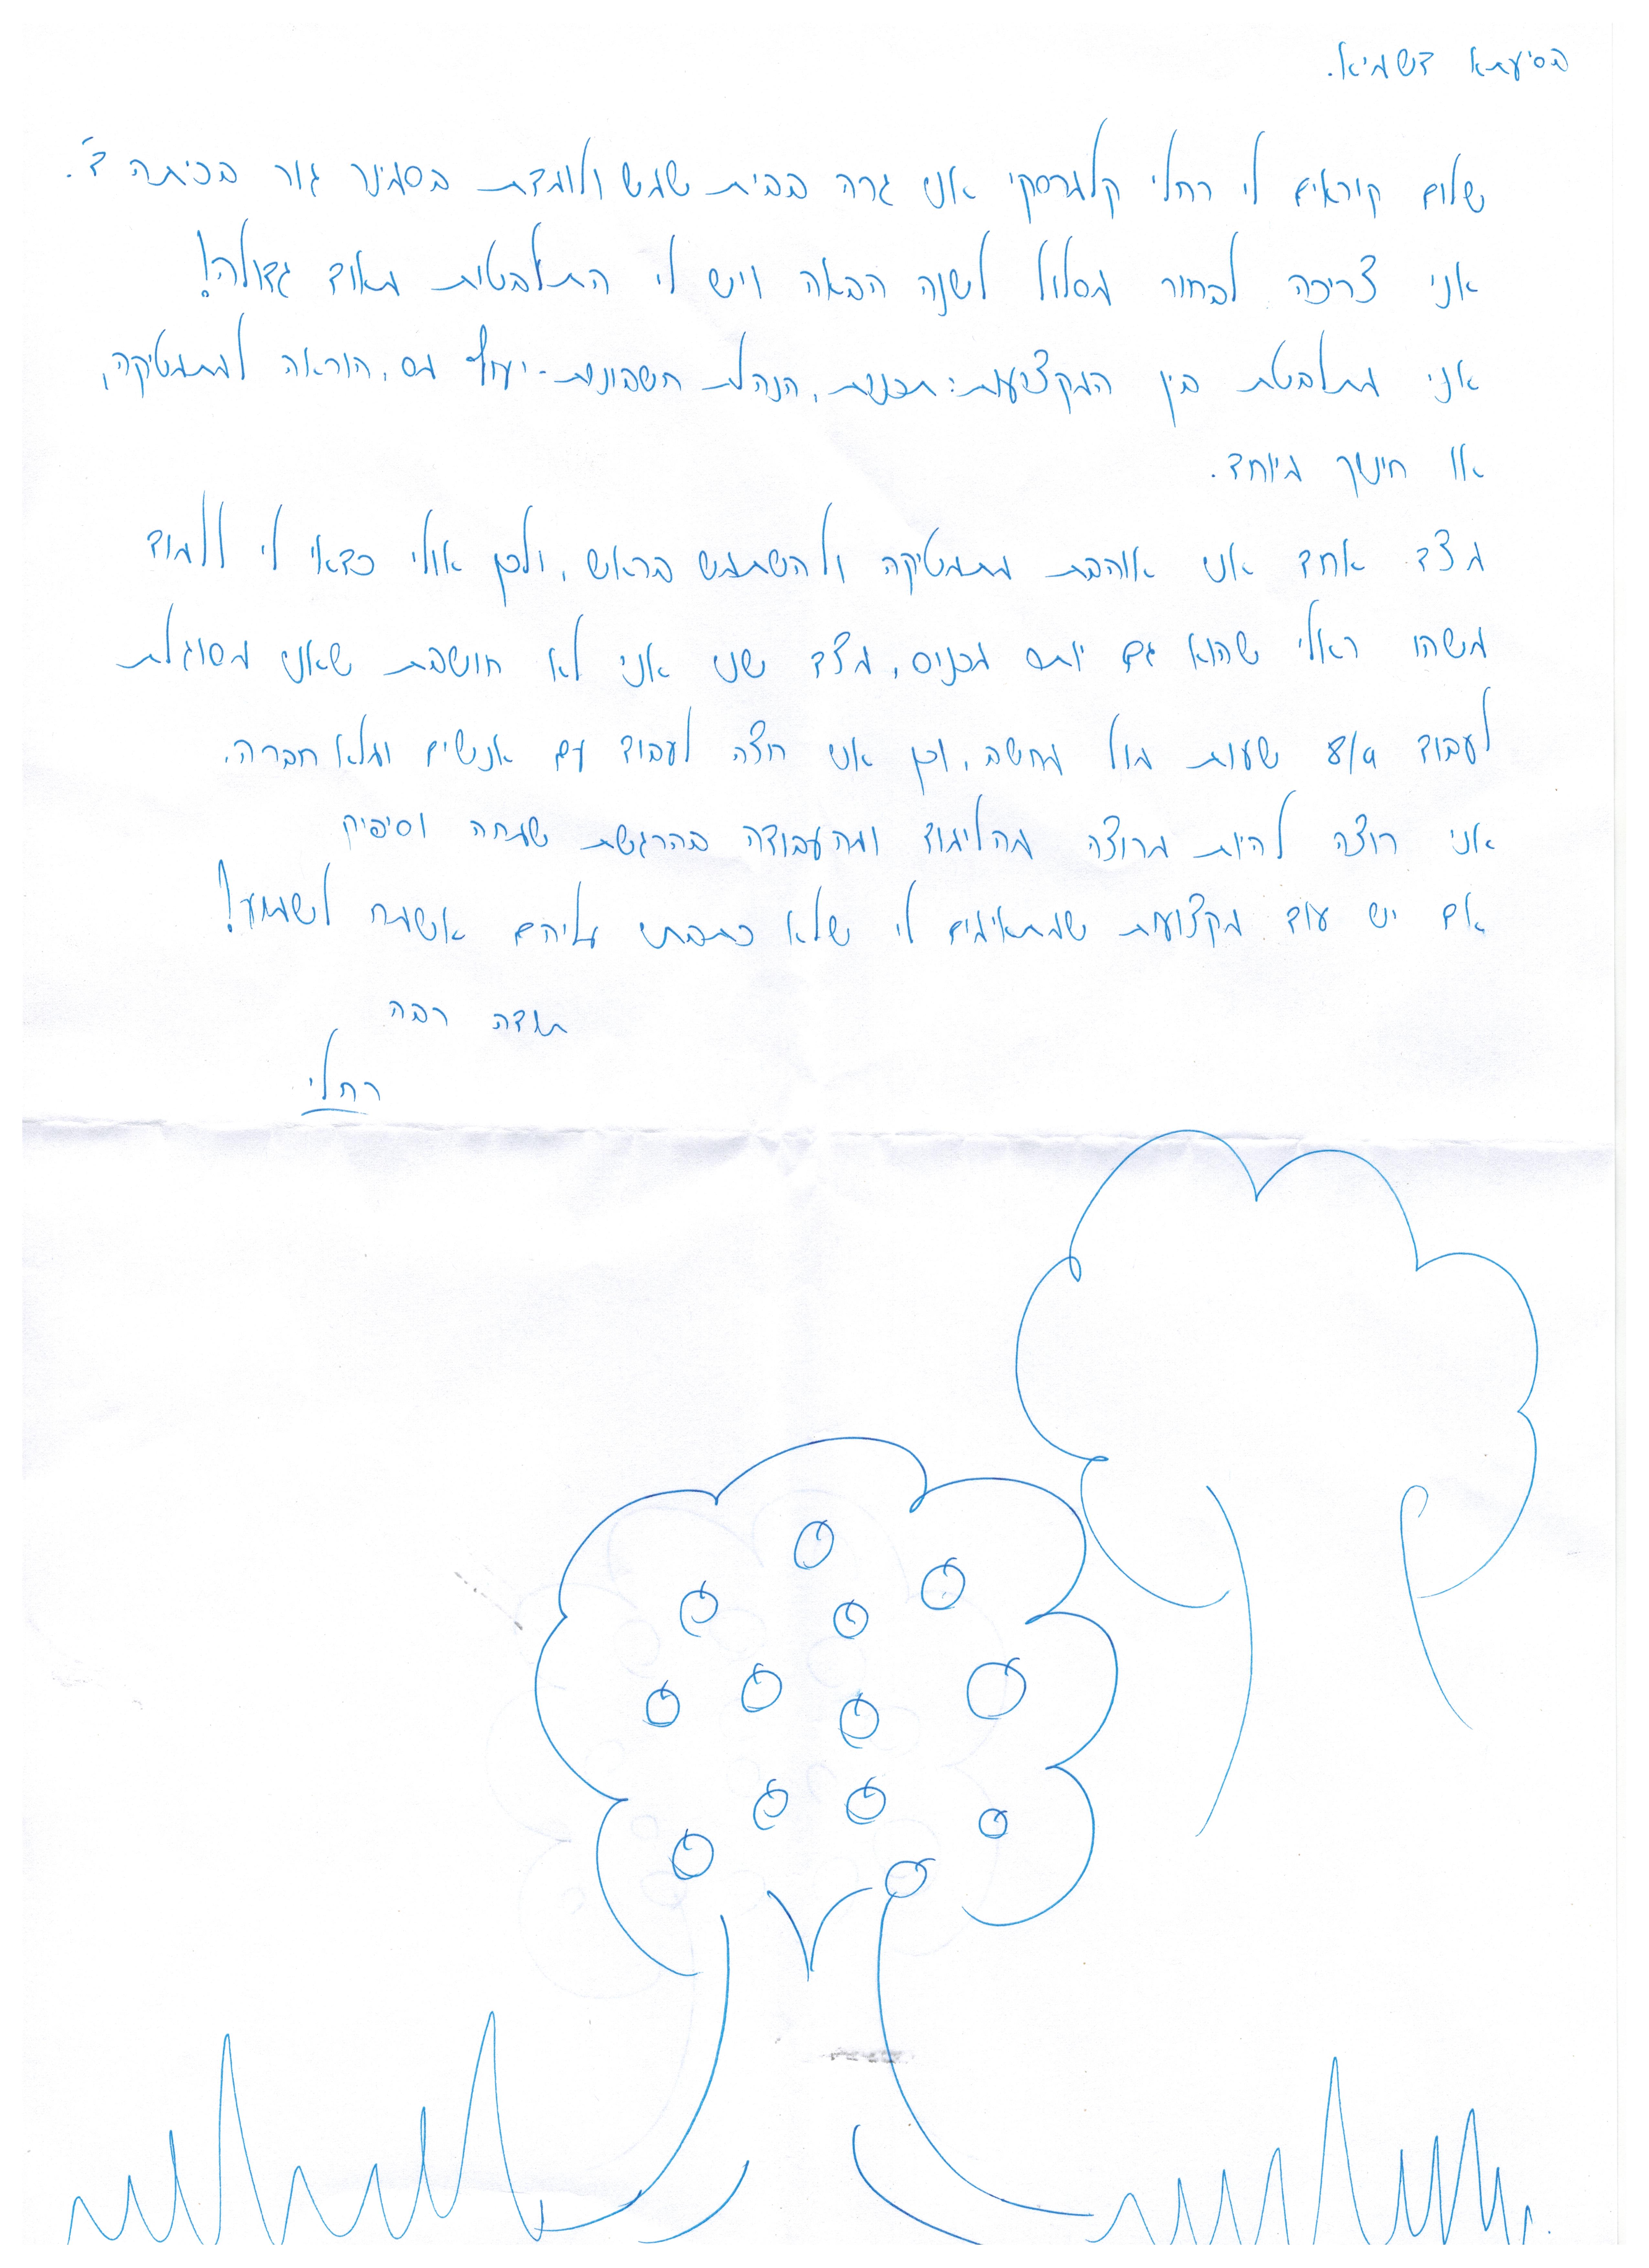 בסיעתא דשמיא.
שלום קוראים לי רחלי קלמרסקי אני גרה בבית שמש ולומדת בסמינר גור בכיתה ד'.
אני צריכה לבחור מסלול לשנה הבאה ויש לי התלבטות מאוד גדולה!
אני מתלבטת בין המקצועות: תכנות, הנהלת חשבונות - יעוץ מס, הוראה למתמטיקה,
או חינוך מיוחד.
מצד אחד אני אוהבת מתמטיקה ולהשתמש בראש, ולכן אולי כדאי לי ללמוד
משהו ראלי שהוא גם יותר מכניס, מצד שני אני לא חושבת שאני מסוגלת
לעבוד 8/9 שעות מול מחשב, וכן אני רוצה לעבוד עם אנשים ומלא חברה.
אני רוצה להיות מרוצה מהלימוד ומהעבודה בהרגשת שמחה וסיפוק
אם יש עוד מקצועות שמתאימים לי שלא כתבתי עליהם אשמח לשמוע!
תודה רבה
רחלי